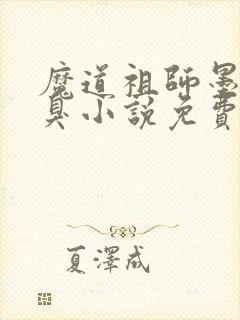 魔道祖師墨
臭小說免費
夏澤成